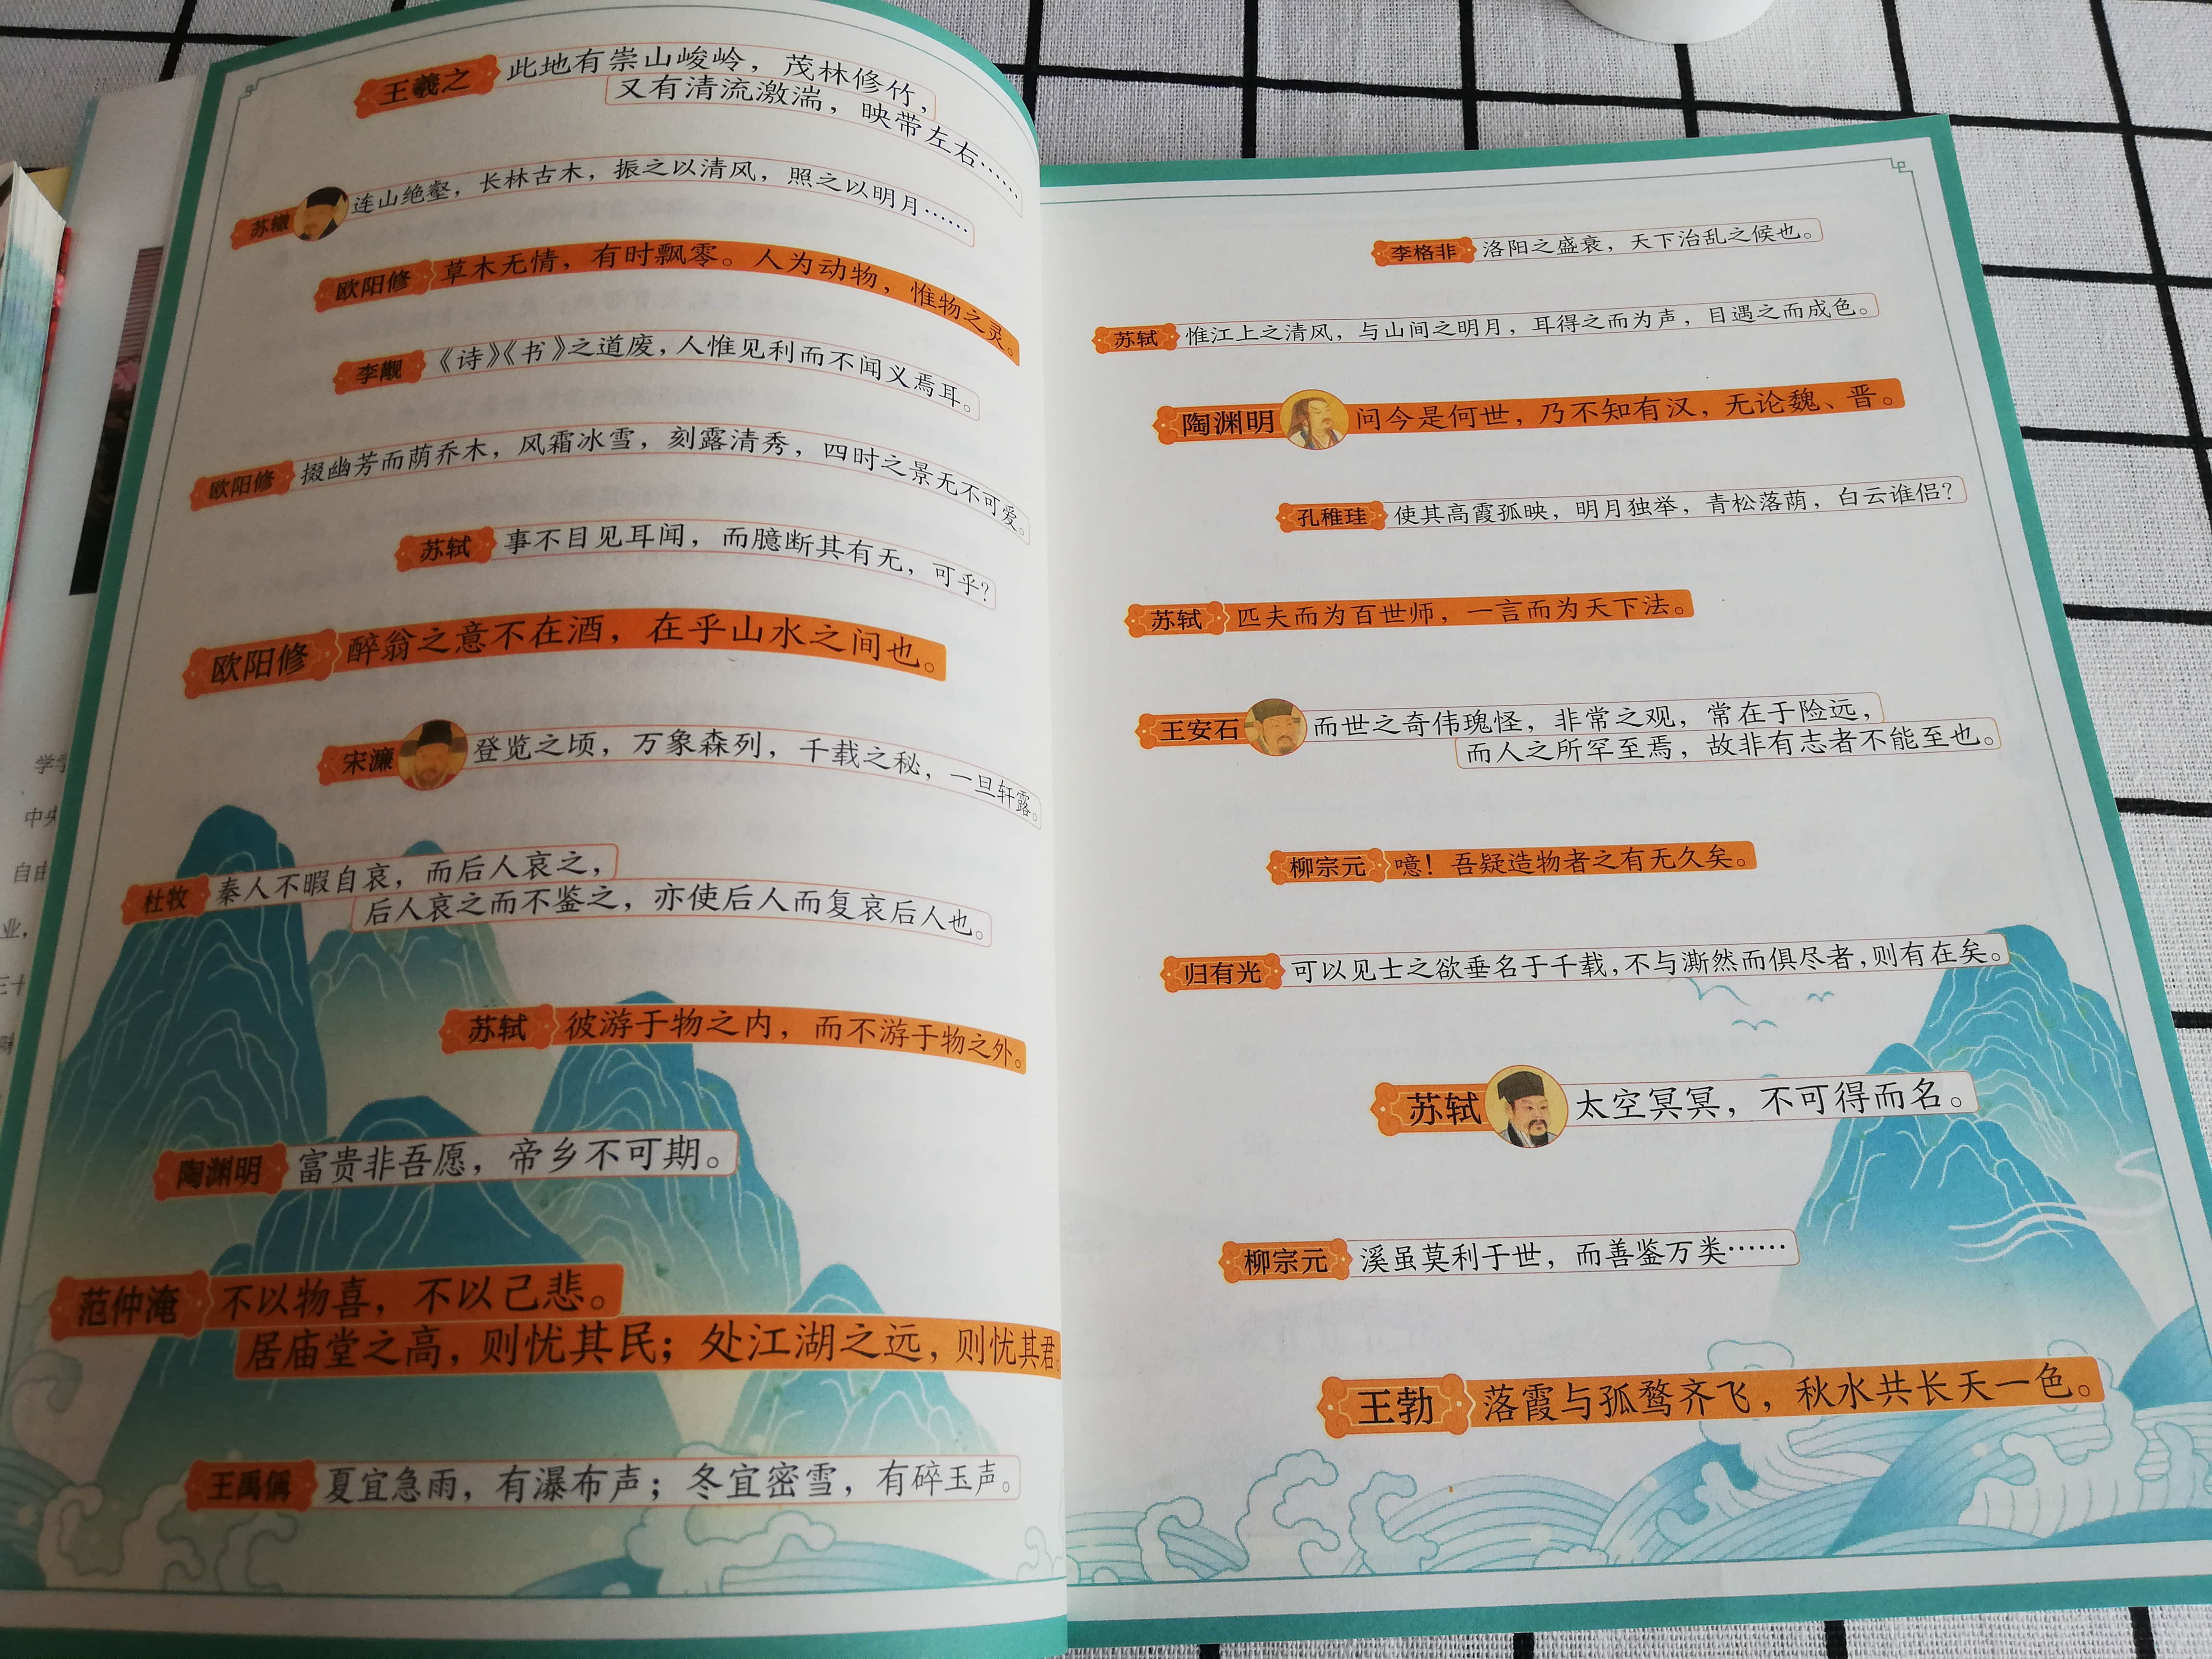 王羲之 此地有崇山峻岭，茂林修竹，
又有清流激湍，映带左右……
苏辙 连山绝壑，长林古木，振之以清风，照之以明月……
欧阳修 草木无情，有时飘零。人为动物，惟物之灵。
李觏 《诗》《书》之道废，人惟见利而不闻义焉耳。
欧阳修 掇幽芳而荫乔木，风霜冰雪，刻露清秀，四时之景无不可爱。
苏轼 事不目见耳闻，而臆断其有无，可乎？
欧阳修 醉翁之意不在酒，在乎山水之间也。
宋濂 登览之顷，万象森列，千载之秘，一旦轩露。
杜牧 秦人不暇自哀，而后人哀之，
后人哀之而不鉴之，亦使后人而复哀后人也。
苏轼 彼游于物之内，而不游于物之外。
陶渊明 富贵非吾愿，帝乡不可期。
范仲淹 不以物喜，不以己悲。
居庙堂之高，则忧其民；处江湖之远，则忧其君。
王禹偁 夏宜急雨，有瀑布声；冬宜密雪，有碎玉声。
李格非 洛阳之盛衰，天下治乱之候也。
苏轼 惟江上之清风，与山间之明月，耳得之而为声，目遇之而成色。
陶渊明 问今是何世，乃不知有汉，无论魏、晋。
孔稚珪 使其高霞孤映，明月独举，青松落荫，白云谁侣？
苏轼 匹夫而为百世师，一言而为天下法。
王安石 而世之奇伟瑰怪，非常之观，常在于险远，
而人之所罕至焉，故非有志者不能至也。
柳宗元 噫！吾疑造物者之有无久矣。
归有光 可以见士之欲垂名于千载，不与澌然而俱尽者，则有在矣。
苏轼 太空冥冥，不可得而名。
柳宗元 溪虽莫利于世，而善鉴万类……
王勃 落霞与孤鹜齐飞，秋水共长天一色。
学学
中央
自由
业，
三十